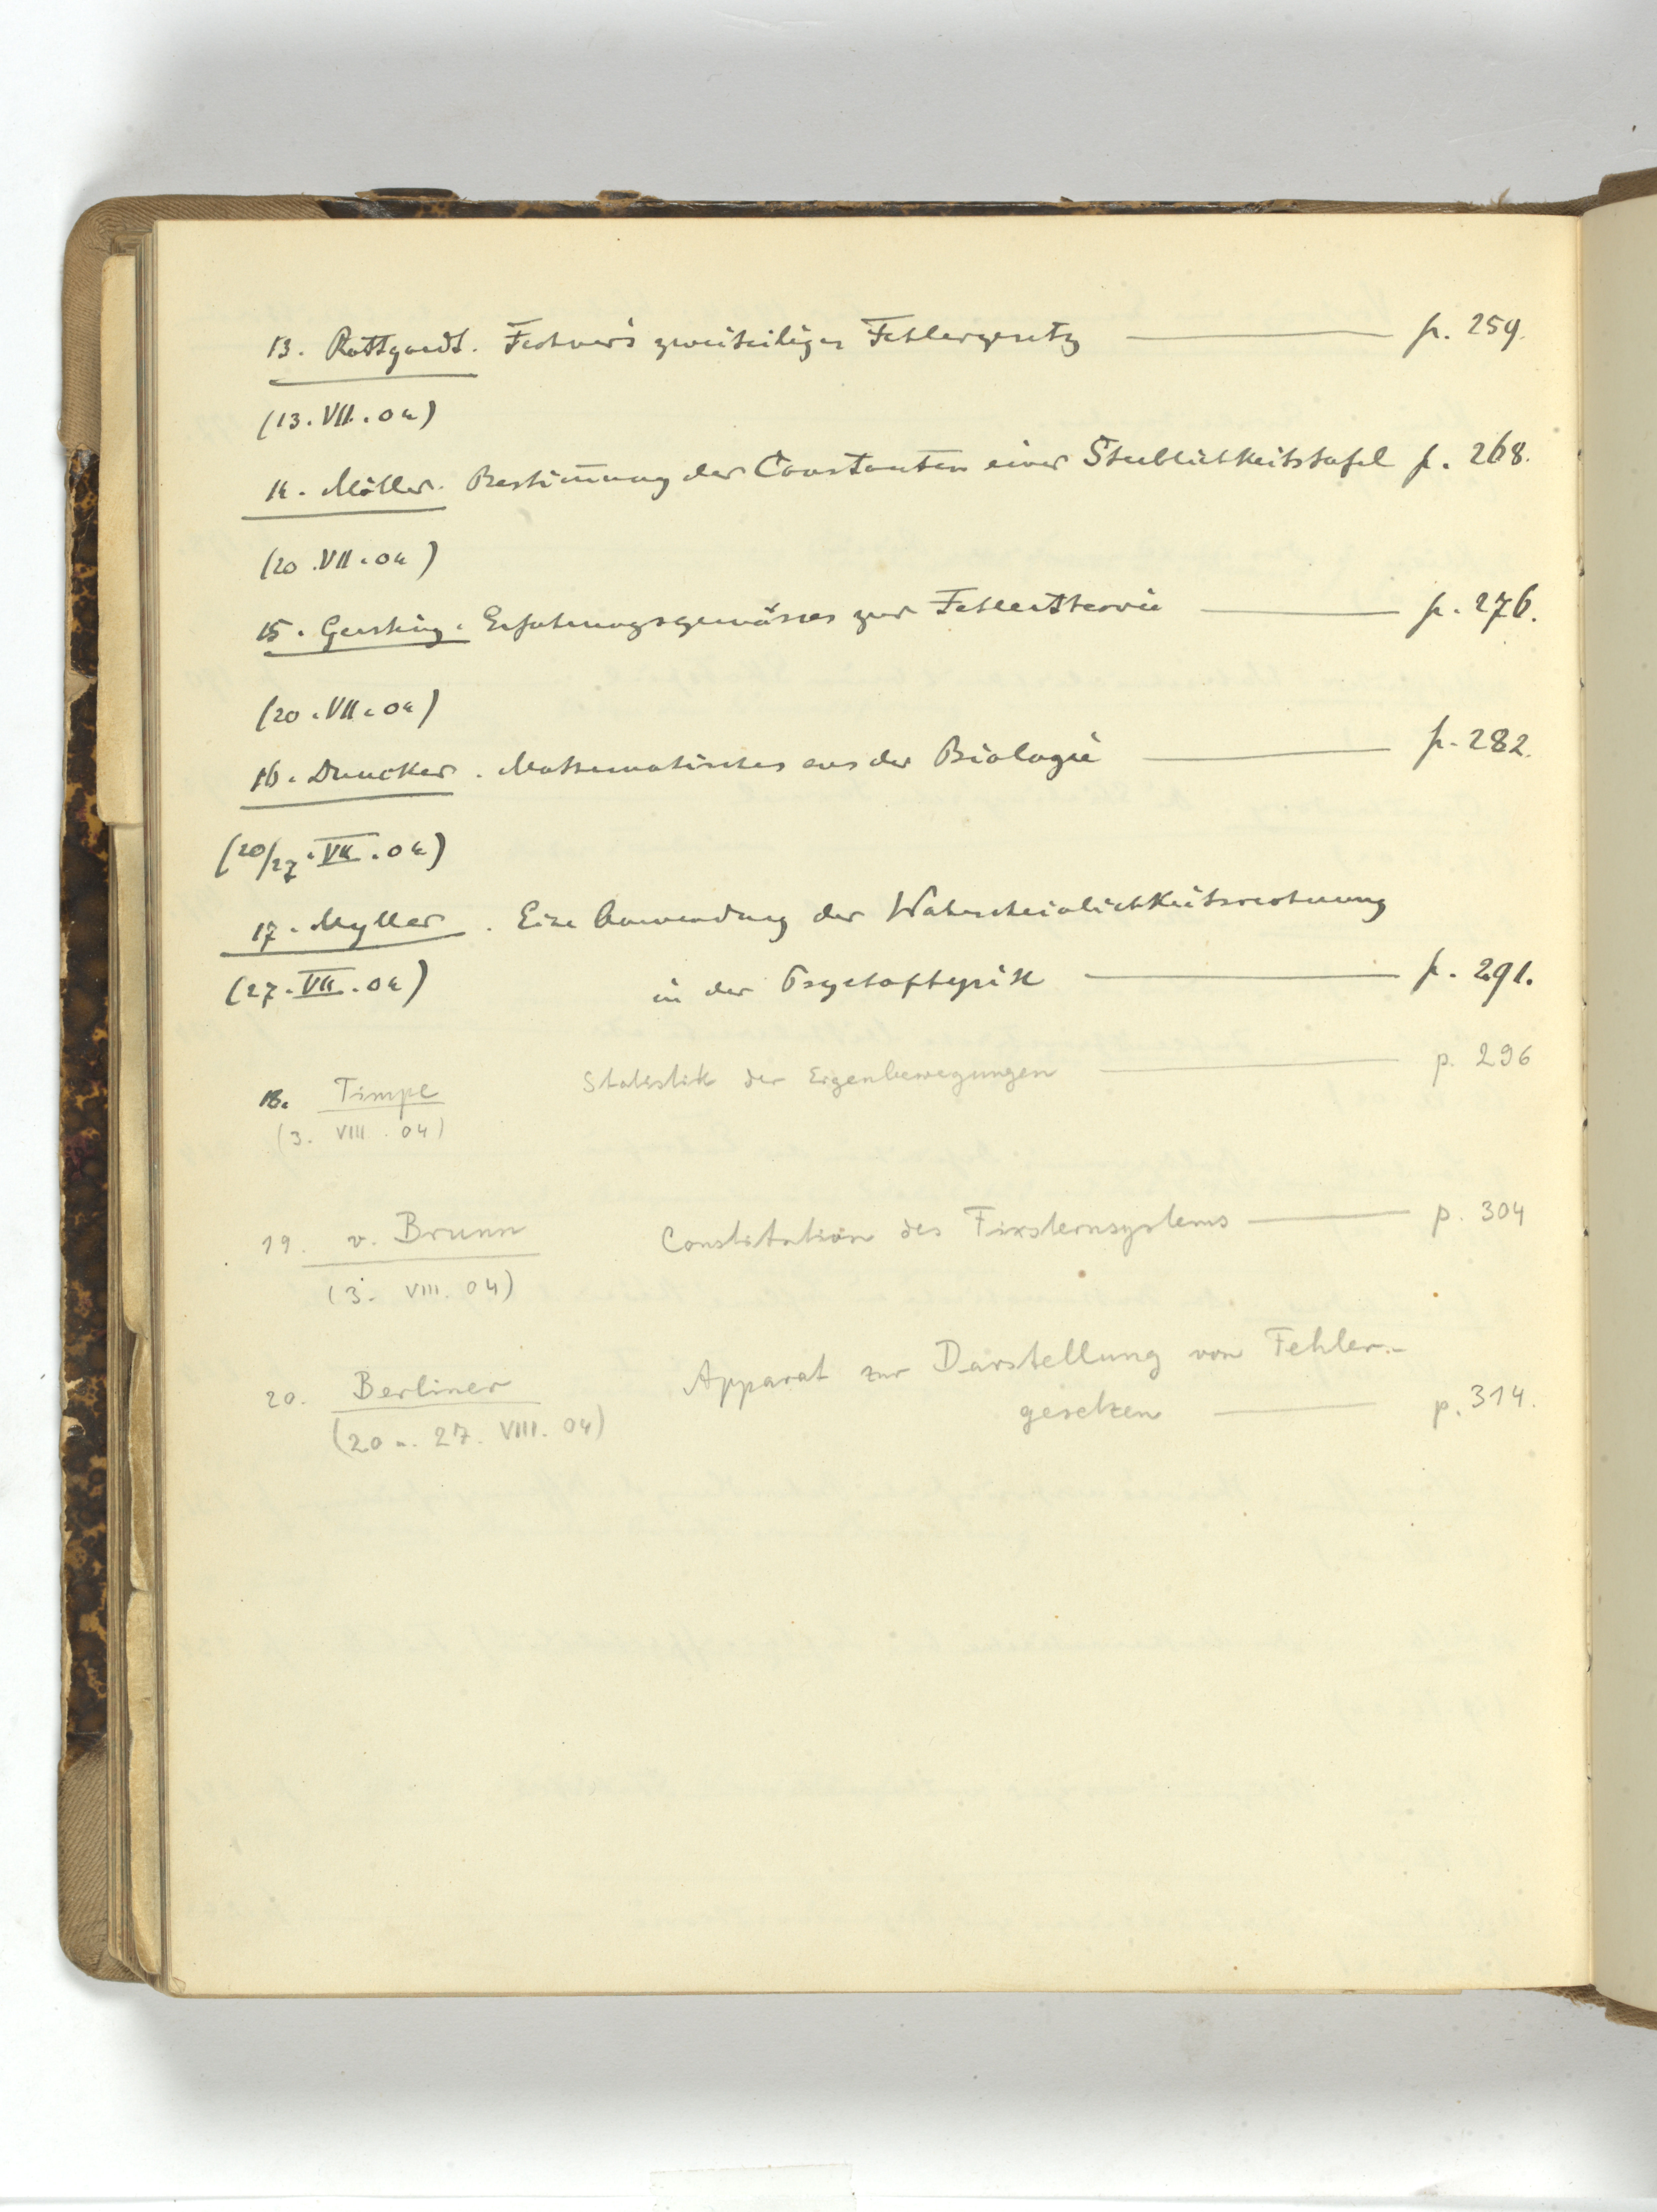 13. Rottgardt. Fechner's zweiseitiges Fehlergesetz — p. 259.
(13. VII. 04)
14. Möller. Bestim̅ung der Constanten einer Sterblichkeitstafel p. 268.
(20. VII. 04)
15. Gersting. Erfahrungsgemässes zur Fehlertheorie — p. 276.
(20. VII. 04)
16. Duncker. Mathematisches aus der Biologie — p. 282.
(20/27. VII. 04)
17. Myller. Eine Anwendung der Wahrscheinlichkeitsrechnung
(27. VII. 04) in der Psychophysik — p. 291.
18. Timpe Statistik der Eigenbewegungen — p. 296
(3. VIII. 04)
19. v. Brunn Constitution des Fixsternsystems — p. 304
(3. VIII. 04)
20. Berliner Apparat zur Darstellung von Fehler-
(20 u. 27. VIII. 04) gesetzen — p. 314.